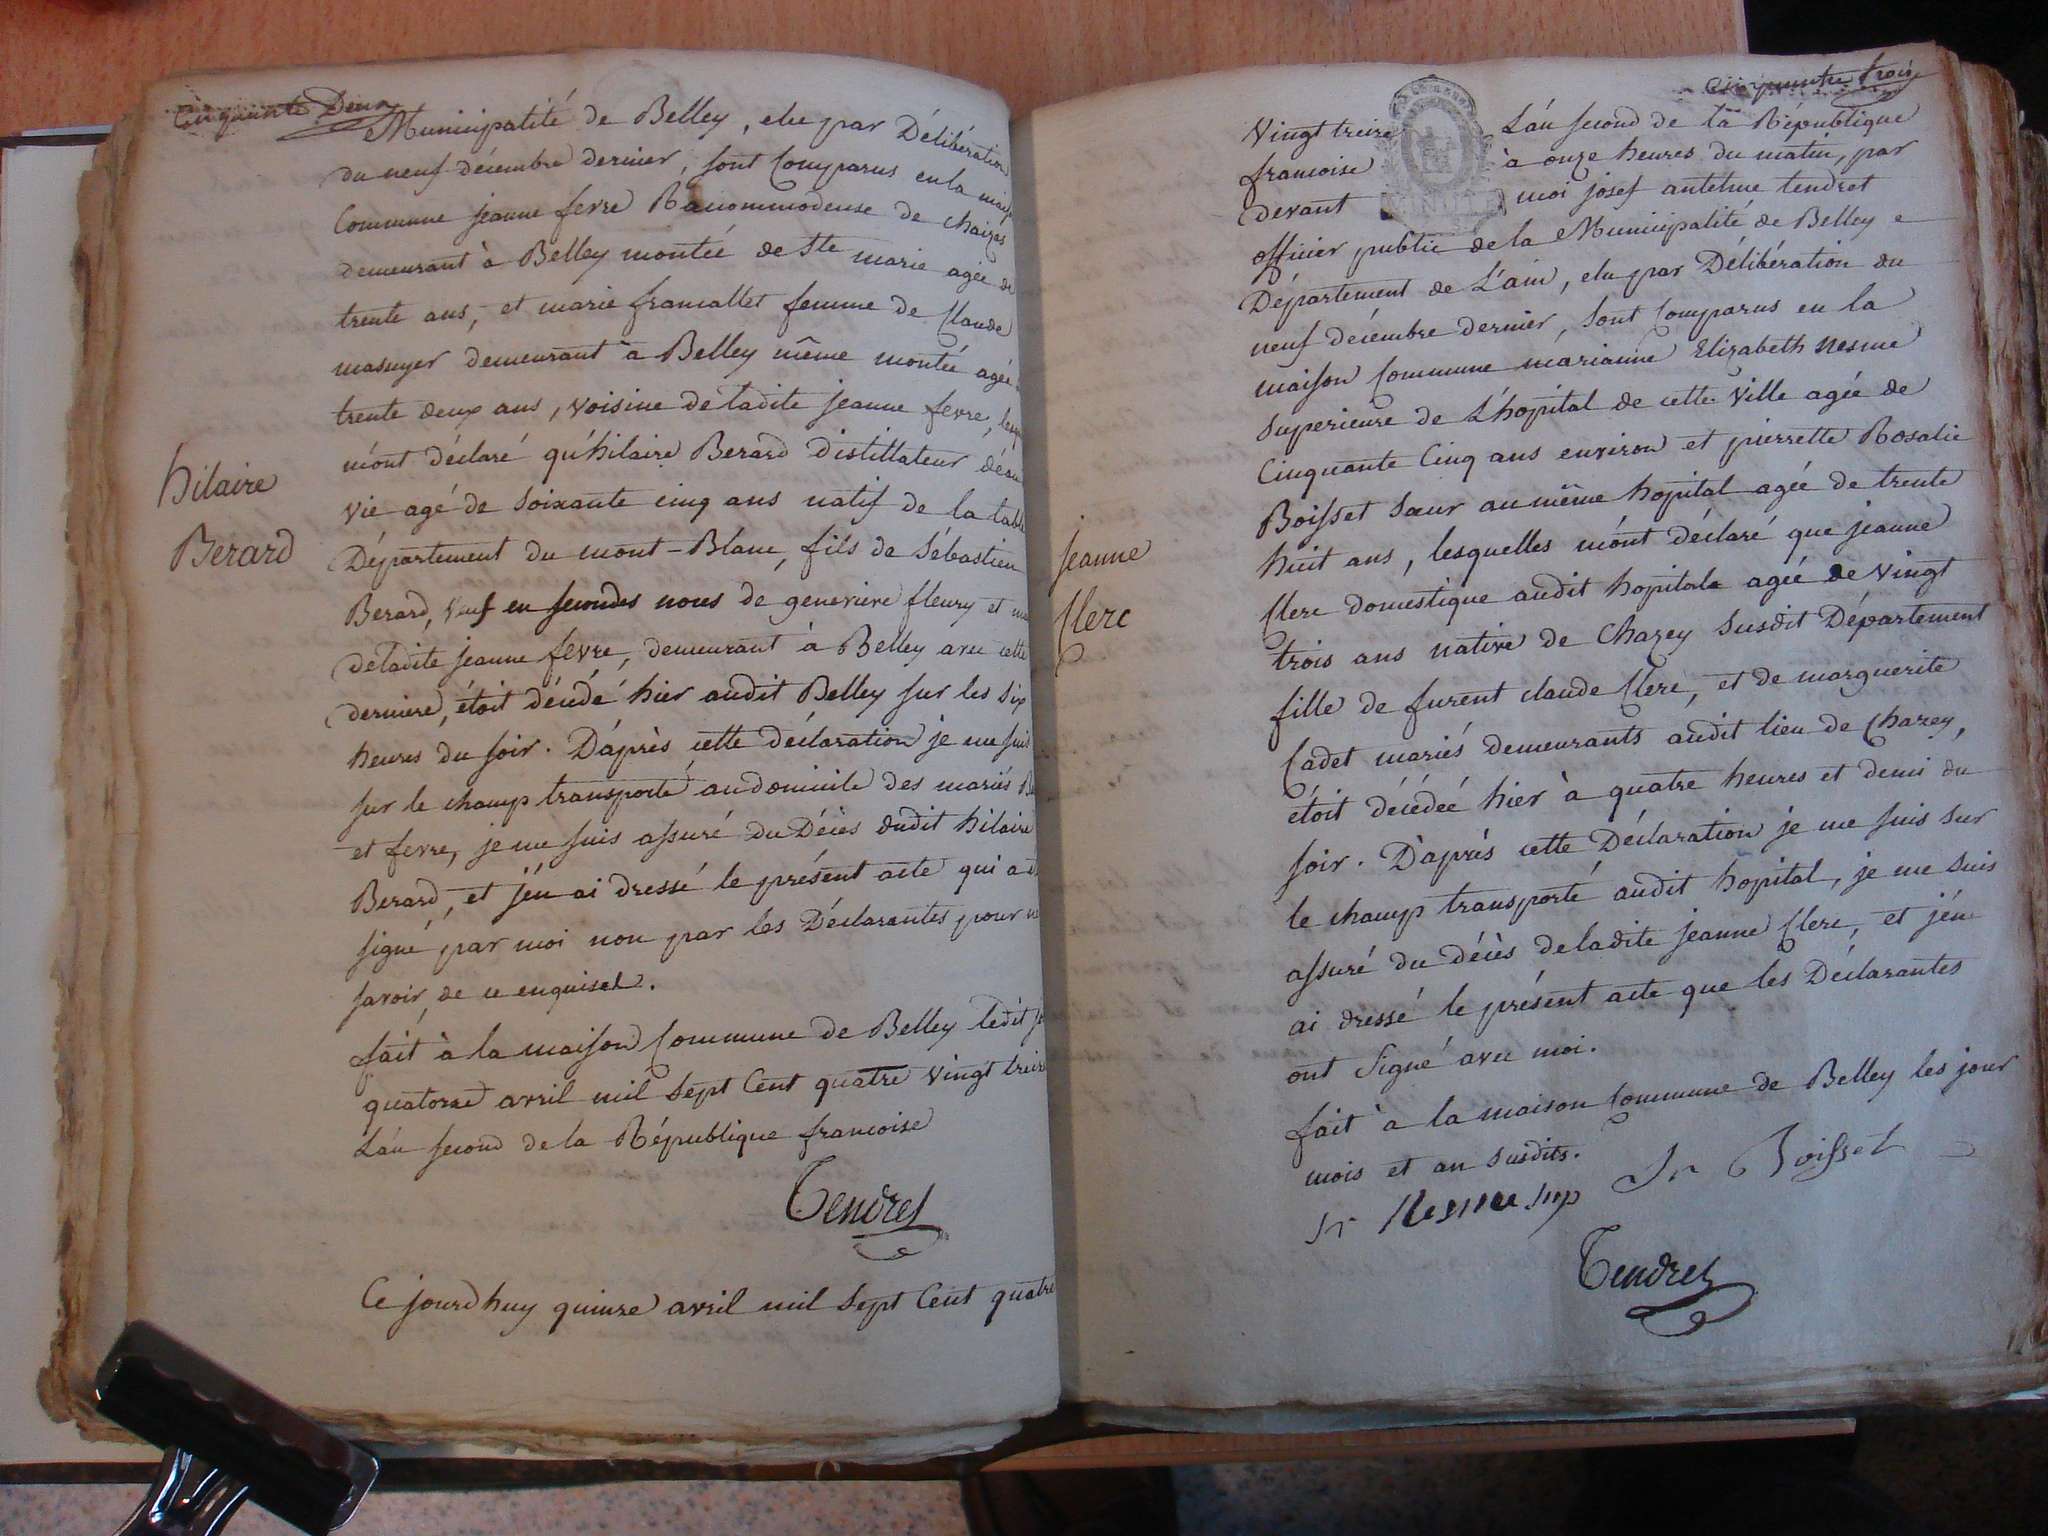 Cinquante Deux
Municipalité de Belley, elu par Délibération
du neuf décembre dernier, sont Comparus en la
Commune jeanne fevre Racommodeuse de chaizes
demeurant à Belley montée de Ste marie agée de
trente ans, et marie francallet femme de Claude
masuyer demeurant à Belley même montée agée
trente deux ans, voisine de ladite jeanne fevre,
m'ont déclaré qu'hilaire Berard distillateur d'eau
vie agé de soixante cinq ans natif de la table
Département du mont-Blanc, fils de Sébastien
Berard, veuf en secondes noces de genevieve fleury et
deladite jeanne fevre, demeurant à Belley avec cette
derniere, étoit décédé hier audit Belley sur les six
heures du soir. D'après cette déclaration je me suis
sur le champ transporté audomicile des mariés
et fevre, je me suis assuré du Décès dudit hilaire
Berard, et j'en ai dressé le présent acte qui a
signé par moi non par les Déclarantes pour
savoir, de ce enquises.
fait à la maison Commune de Belley ledit
quatorze avril mil sept Cent quatre vingt treize
L'an second de la République francoise
Tendret
Ce jourd'huy quinze avril mil sept Cent quatre
hilaire
Berard
Cinquante trois
Vingt treize L'an second de la République
francoise à onze heures du matin, par
devant moi josef antelme tendret
officier public de la Municipalité de Belley
Département de L'ain, elu par Délibération du
neuf décembre dernier, sont Comparus en la
maison Commune marianne Elizabeth nesme
superieure de L'hopital de cette ville agée de
Cinquante Cinq ans environ et pierrette Rosalie
Boisset sœur au même hopital agée de trente
huit ans, lesquelles m'ont déclaré que jeanne
Clerc domestique audit hopitale agée de vingt
trois ans native de Chazey susdit Département
fille de furent claude Clerc, et de marguerite
Cadet mariés demeurants audit lieu de Chazey,
étoit décédeé hier à quatre heures et demi du
soir. D'aprés cette Déclaration je me suis sur
le champ transporté audit hopital, je me suis
assuré du décès deladite jeanne Clerc, et j'en
ai dressé le présent acte que les Déclarantes
ont signé avec moi.
fait à la maison Commune de Belley les jour
mois et an susdits.
Sr Nesme sup Sr Boisset
Tendret
jeanne
Clerc